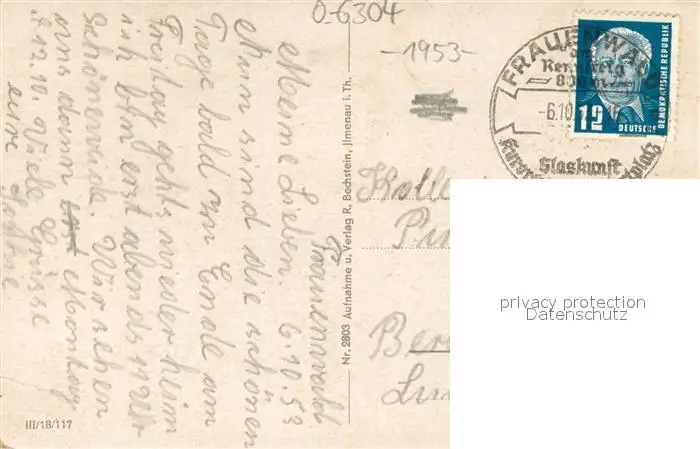 0-6304
-1953-
FRAUENWALD
am
Rennsteig
800 m
-6.10.
Glaskunst
12
DEUTSCHE
DEMOKRATISCHE REPUBLIK
Frauenwald
6.10.53
Meine Lieben.
Nun sind die schönen
Tage bald zum Ende am
Freitag gehts wieder heim
ich bin erst abends nach
Schöneweide. Wir sehen
uns dann Montag
d 12.10. Viele Grüsse
eure
Nr. 2803 Aufnahme u. Verlag R. Bechstein, Jlmenau i. Th.
Kolle
Ber
III/18/117
privacy protection
Datenschutz